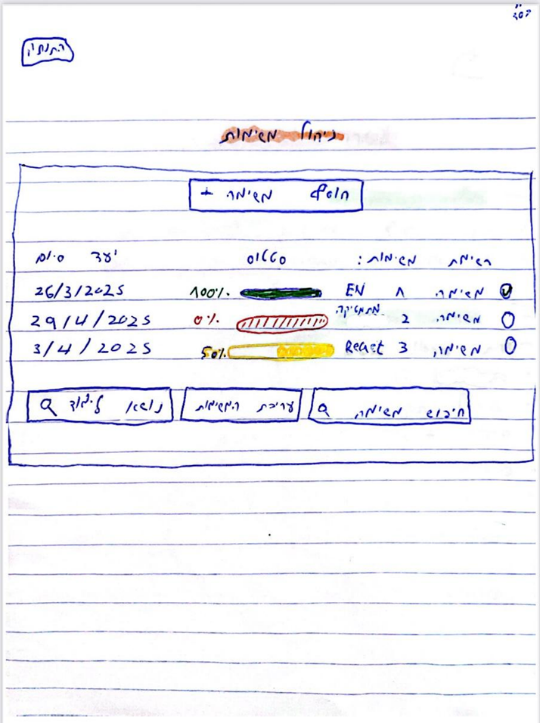 התנתק
ניהול משימות
הוסף משימה +
רשימת משימות: סטטוס יעד סיום
משימה 1 EN 100% 26/3/2025
משימה 2 מתמטיקה 0% 29/4/2025
משימה 3 React 50% 3/4/2025
חיפוש משימה עריכת המשימות נושא לימוד